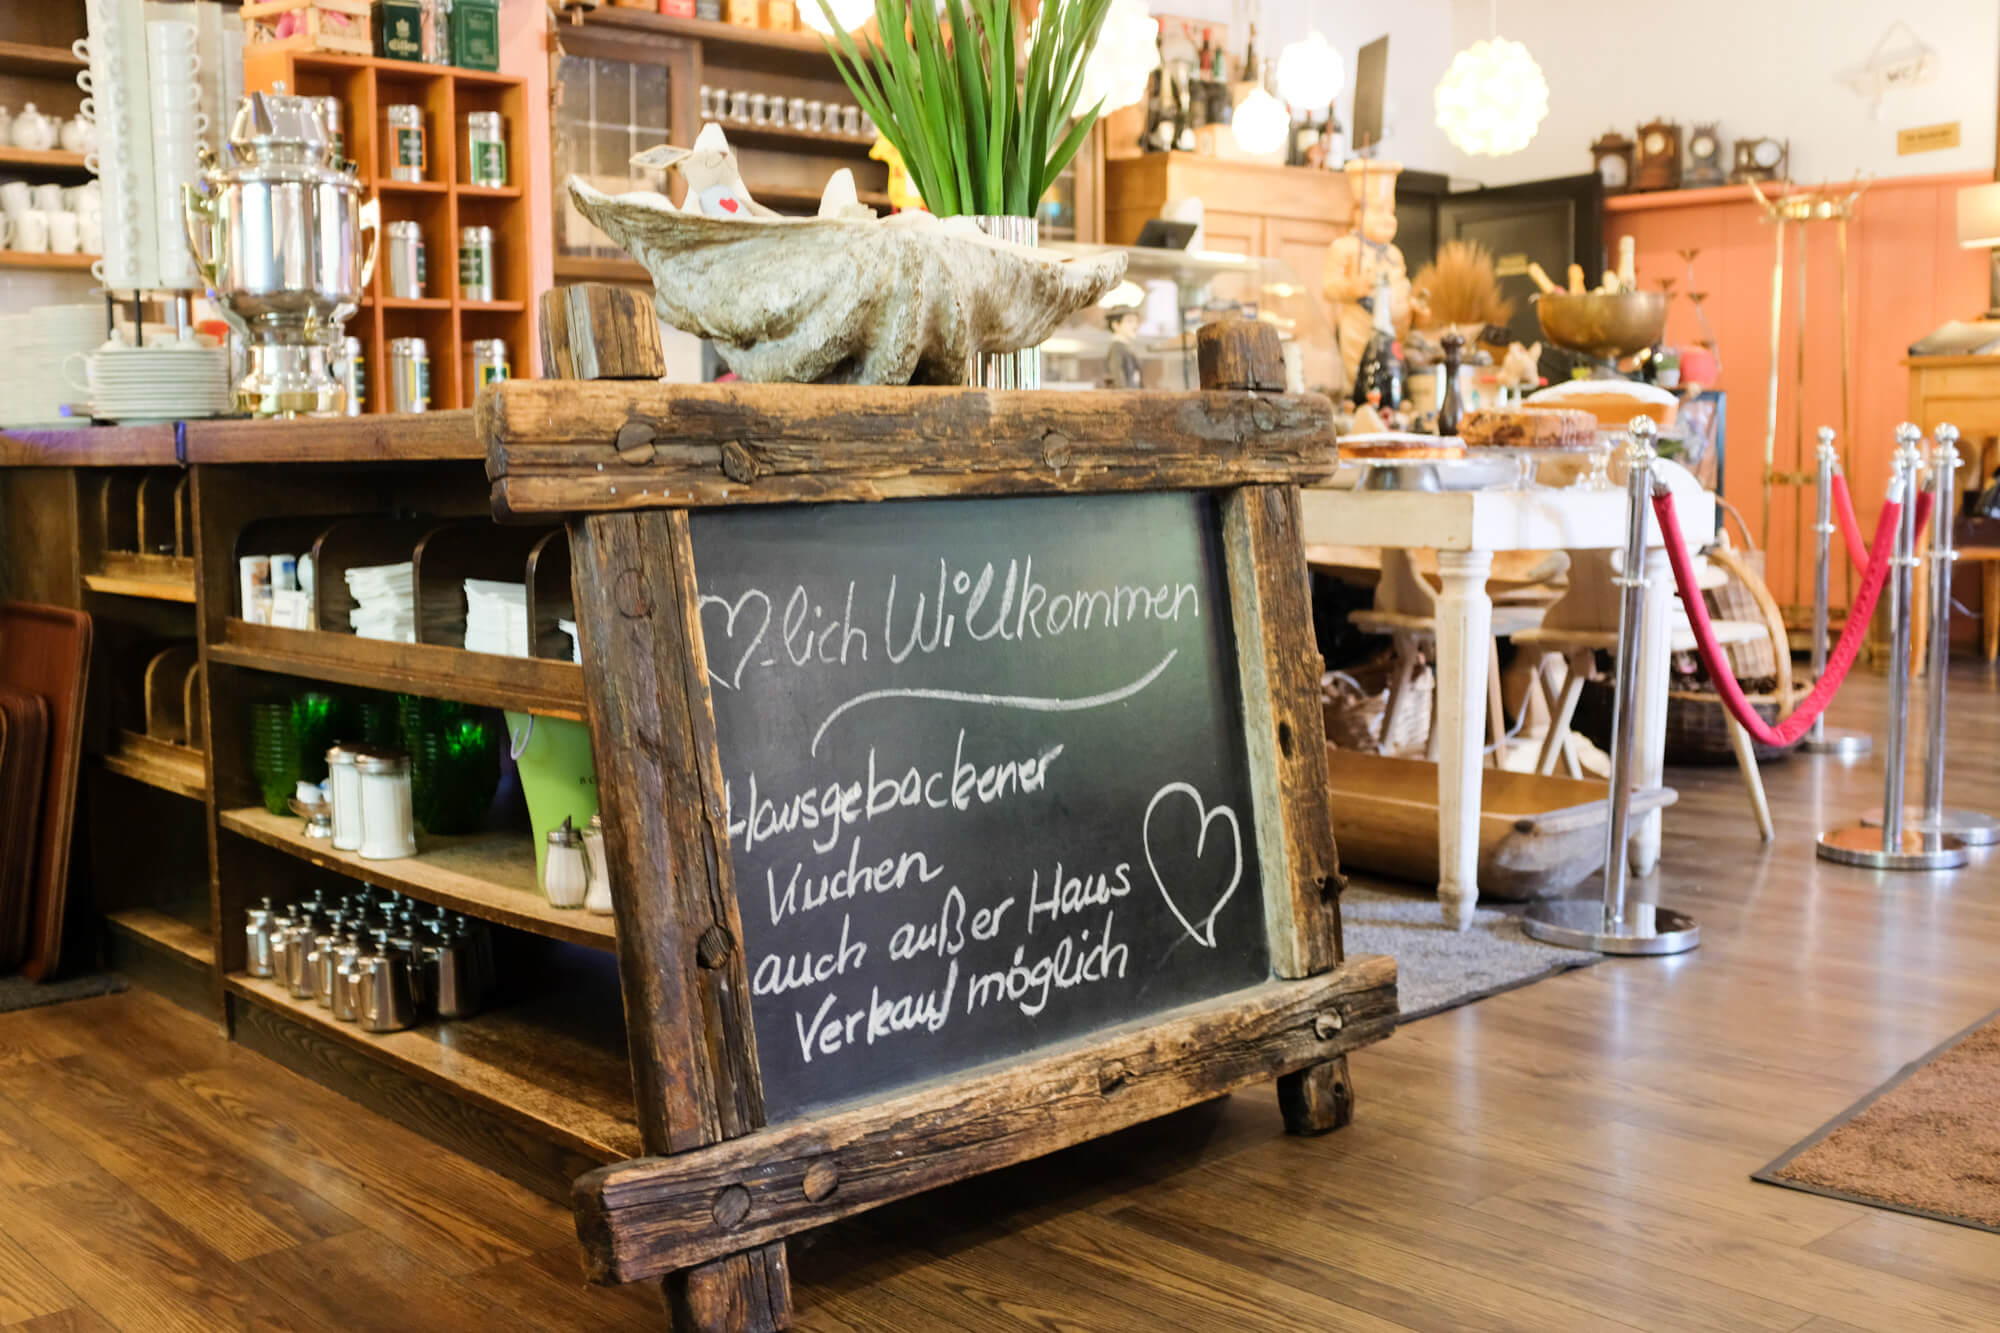 ♡-lich Willkommen
Hausgebackener
Kuchen
auch außer Haus
Verkauf möglich